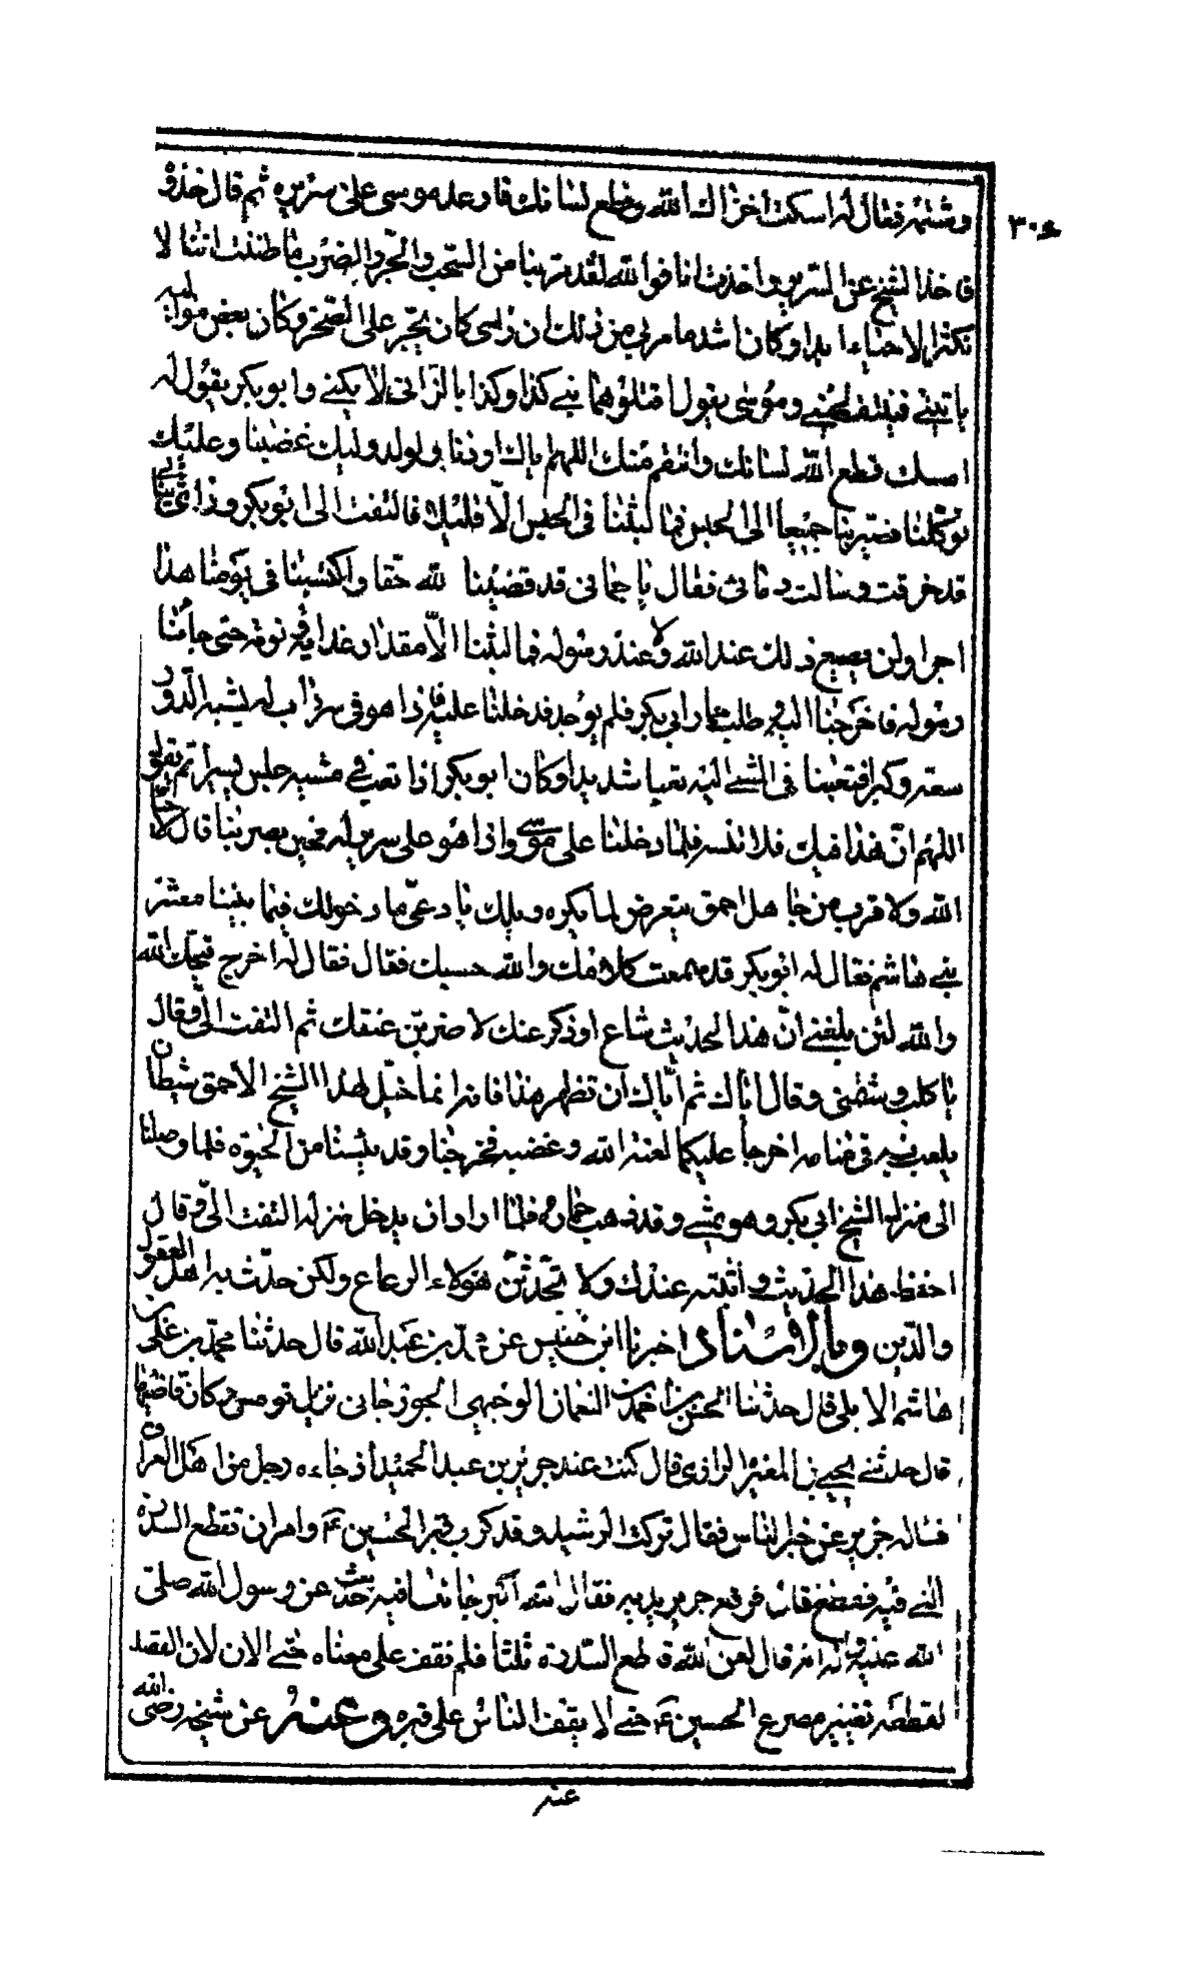 ٣٠٤
وشتمه فقال له اسكت اخزاك الله وقطع لسانك فارعد موسى على سريره ثم قال خذوه
فاخذ الشيخ عن السرير واخذت انا فوالله لقد مر بنا من السحب والجر والضرب ما ظننت اننا لا
نكثر الاحياء ابدا وكان اشد ما مر بي من ذلك ان راسي كان يجر على الصخر وكان بعض مواليه
ياتيني فينتف لحيتي وموسى يقول اقتلوهما بني كذا وكذا بالزاني لا يكنى وابو بكر يقول له
امسك قطع الله لسانك وانتقم منك اللهم اياك اردنا ولولد وليك غضبنا وعليك
توكلنا فصير بنا جميعا الى الحبس فما لبثنا في الحبس الا قليلا فالتفت الي ابو بكر وراى ثيابي
قد خرقت وسالت دمائي فقال يا حماني قد قضينا لله حقا واكتسبنا في يومنا هذا
اجرا ولن يضيع ذلك عند الله ولا عند رسوله فما لبثنا الا مقدار غدائه ونومه حتى جائنا
رسوله فاخرجنا اليه وطلب حمار ابي بكر فلم يوجد فدخلنا عليه فاذا هو في سرداب له يشبه الدور
سعة وكبرا فتعبنا في المشي اليه تعبا شديدا وكان ابو بكر اذا تعب في مشيه جلس يسيرا ثم يقول
اللهم ان هذا فيك فلا تنسه فلما دخلنا على موسى واذا هو على سرير له فحين بصر بنا قال لا حيا
الله ولا قرب من جاهل احمق يتعرض لما يكره ويلك يا دعي ما دخولك فيما بيننا معشر
بني هاشم فقال له ابو بكر قد سمعت كلامك والله حسبك فقال فقال له اخرج قبحك الله
والله لئن بلغني ان هذا الحديث شاع او ذكر عنك لاضربن عنقك ثم التفت الي وقال
يا كلب وشتمني وقال اياك ثم اياك ان تظهر هذا فانه انما خيل لهذا الشيخ الاحمق شيطان
يلعب به في منامه اخرجا عليكما لعنة الله وغضبه فخرجنا وقد يئسنا من الحيوة فلما وصلنا
الى منزله الشيخ ابي بكر وهو يمشي وقد ذهب حماره فلما اراد ان يدخل منزله التفت الي وقال
احفظ هذا الحديث واثبته عندك ولا تحدثن هؤلاء الرعاع ولكن حدث به اهل العقول
والدين وبالاسناد اخبرنا ابن خنيس عن محمد بن عبد الله قال حدثنا محمد بن علي بن
هاشم الابلي قال حدثنا الحسن بن احمد بن النعمان الوجيهي الجوزجاني نزيل قومس وكان قاضيها
قال حدثني يحيى بن المغيرة الرازي قال كنت عند جرير بن عبد الحميد اذ جاءه رجل من اهل العراق
فساله جرير عن خبر الناس فقال تركت الرشيد وقد كرب قبر الحسين ع وامر ان تقطع السدرة
التي فيه فقطعت قال فرفع جرير يديه فقال الله اكبر جائنا فيه حديث عن رسول الله صلى
الله عليه وآله انه قال لعن الله قاطع السدرة ثلثا فلم نقف على معناه حتى الان لان القصد
لقطعه تغيير مصرع الحسين ع حتى لا يقف الناس على قبره وعنه عن شيخه رضي الله
عنه